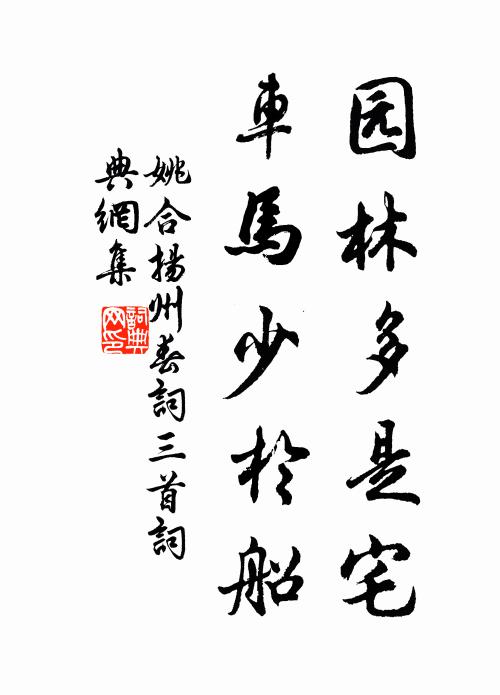 园林多是宅
車馬少於船
姚合揚州春詞三首詞
典網集
詞典
网印